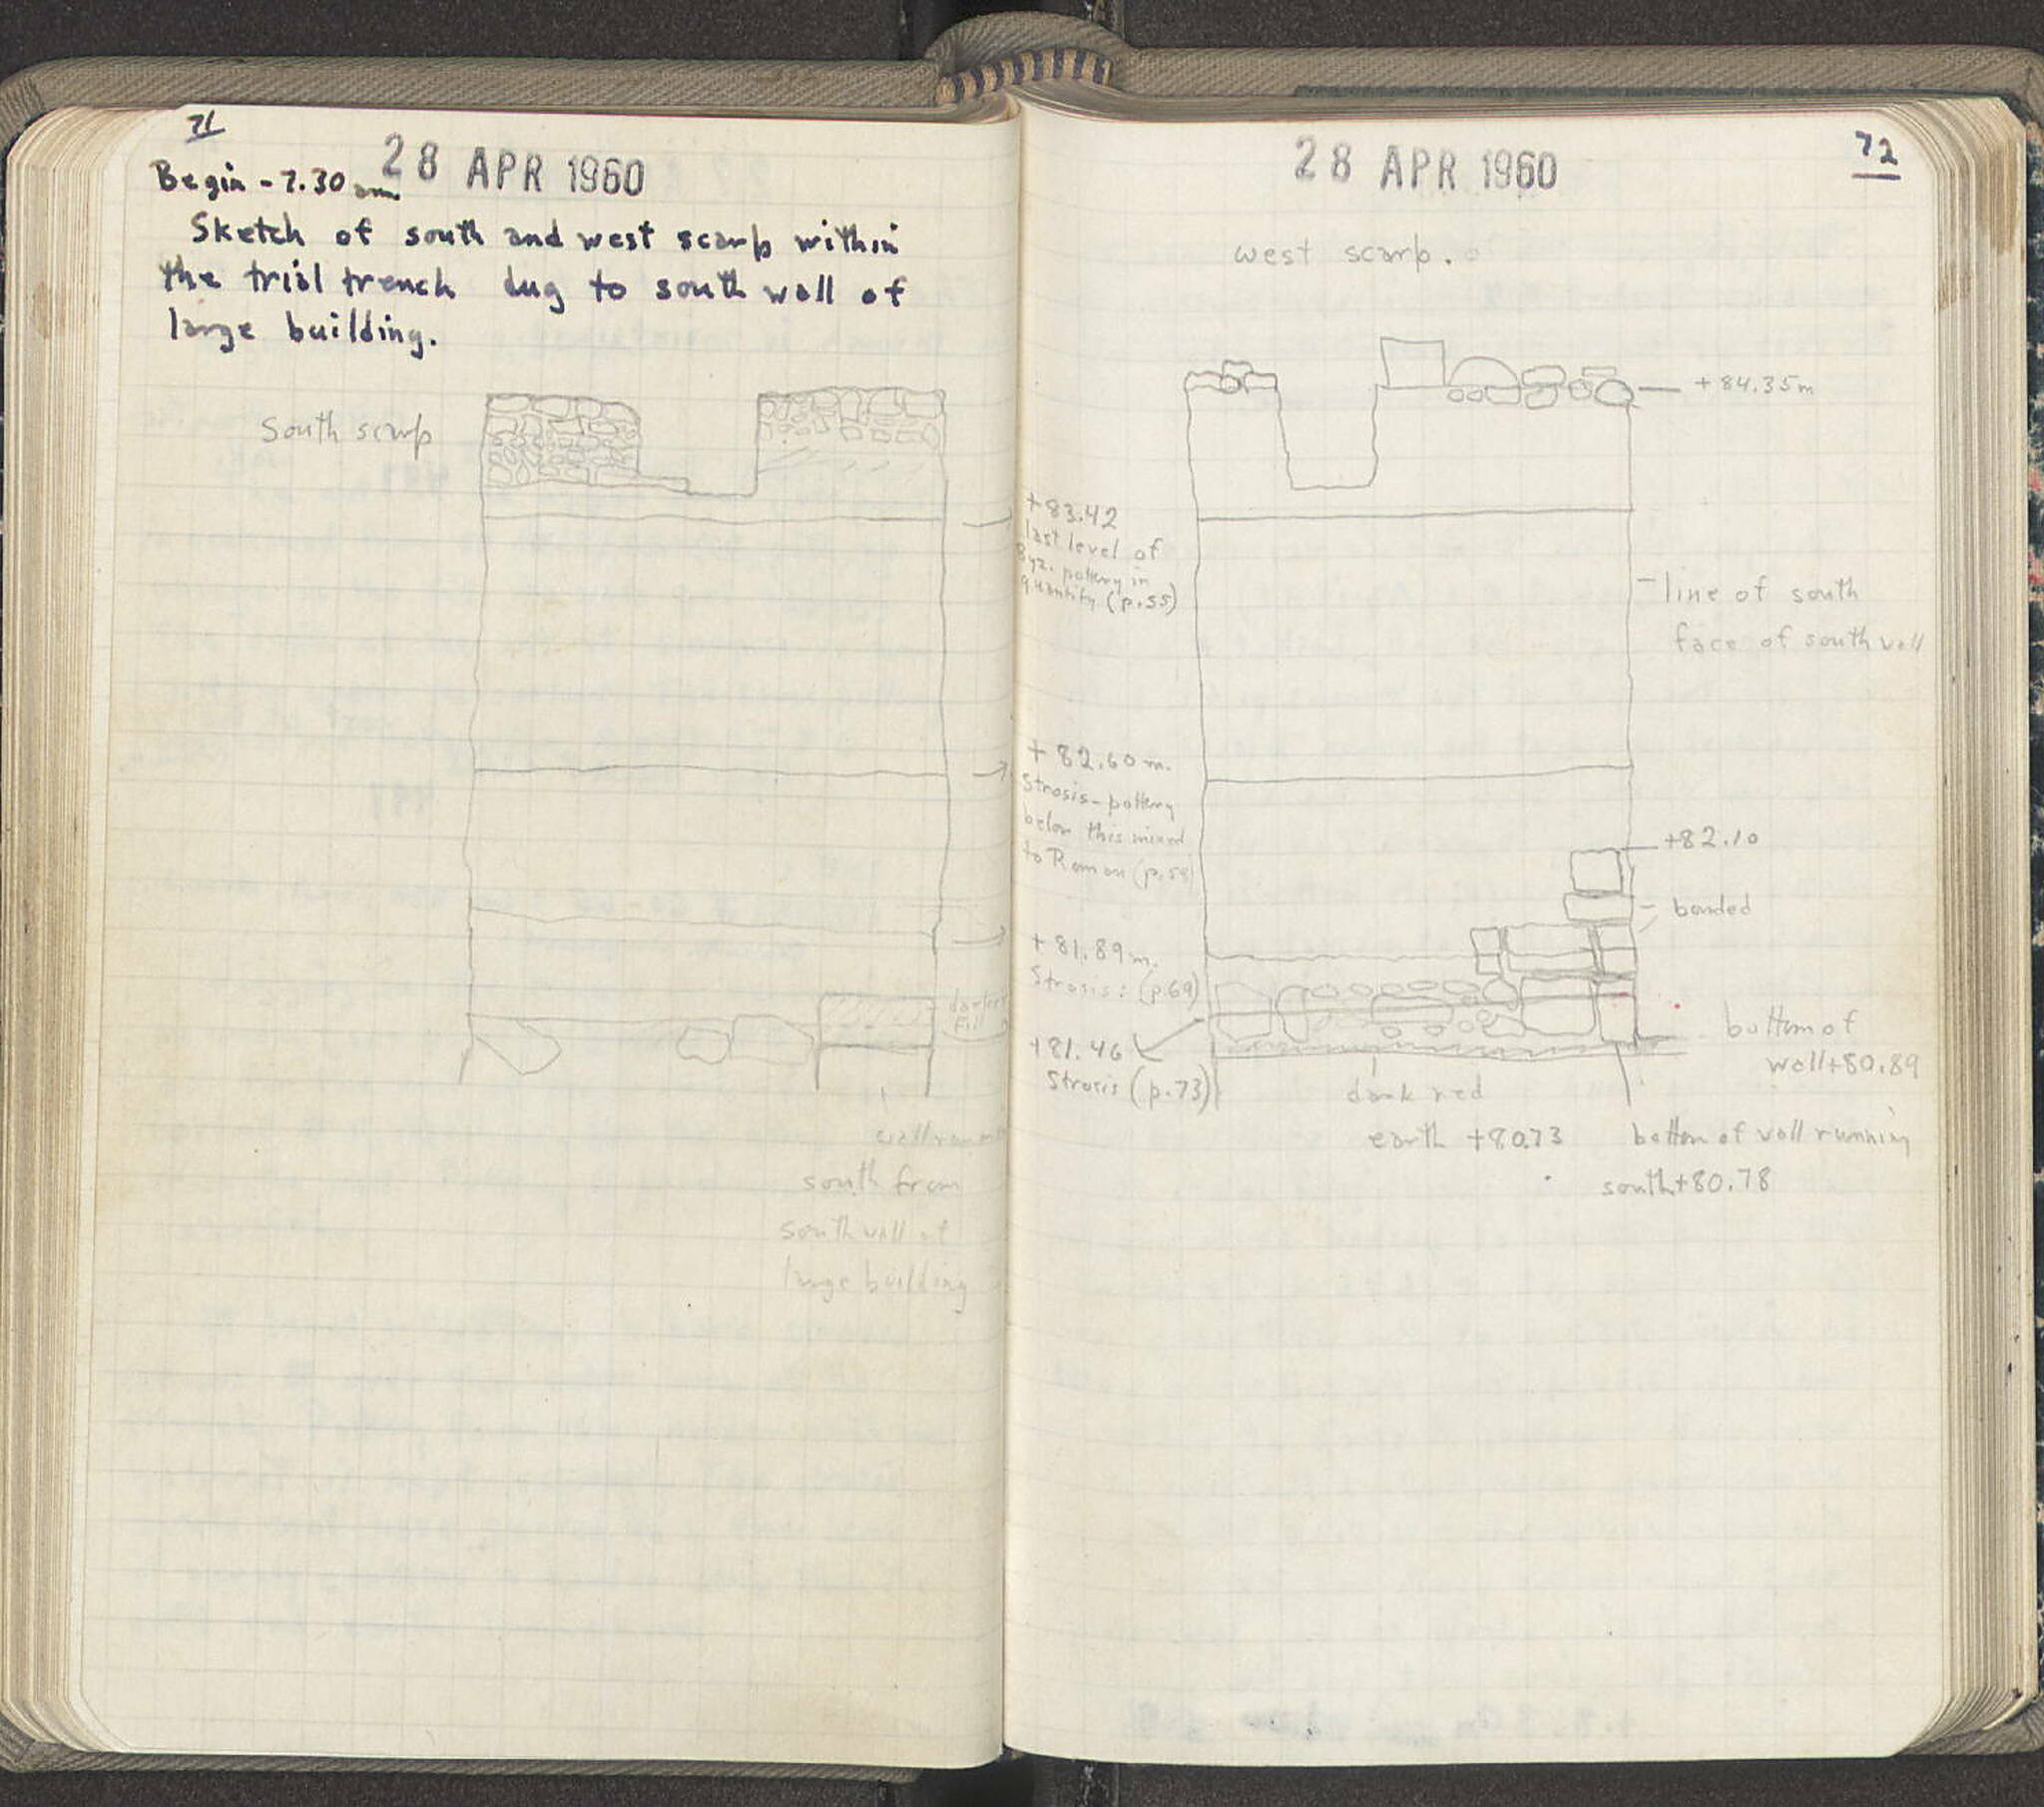 71
28 APR 1960
Begin - 7.30 am
Sketch of south and west scarp within
the trial trench dug to south wall of
large building.
South scarp
darker
fill
wall running
south from
south wall of
large building
72
28 APR 1960
west scarp.
+ 84.35m
+83.42
last level of
Byz. pottery in
quantity (p.55)
line of south
face of south wall
+ 82.60 m.
Strosis - pottery
below this mixed
to Roman (p.58)
+82.10
bonded
+ 81.89 m.
Strosis: (p.69)
+81.46
Strosis (p.73)
bottom of
wall +80.89
dark red
earth +80.73
bottom of wall running
south +80.78